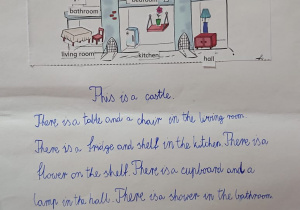 bathroom
bedroom
living room
kitchen
hall
This is a castle.
There is a table and a chair in the living room
There is a fridge and shelf in the kitchen There is a
flower on the shelf. There is a cupboard and a
lamp in the hall. There is a shower in the bathroom